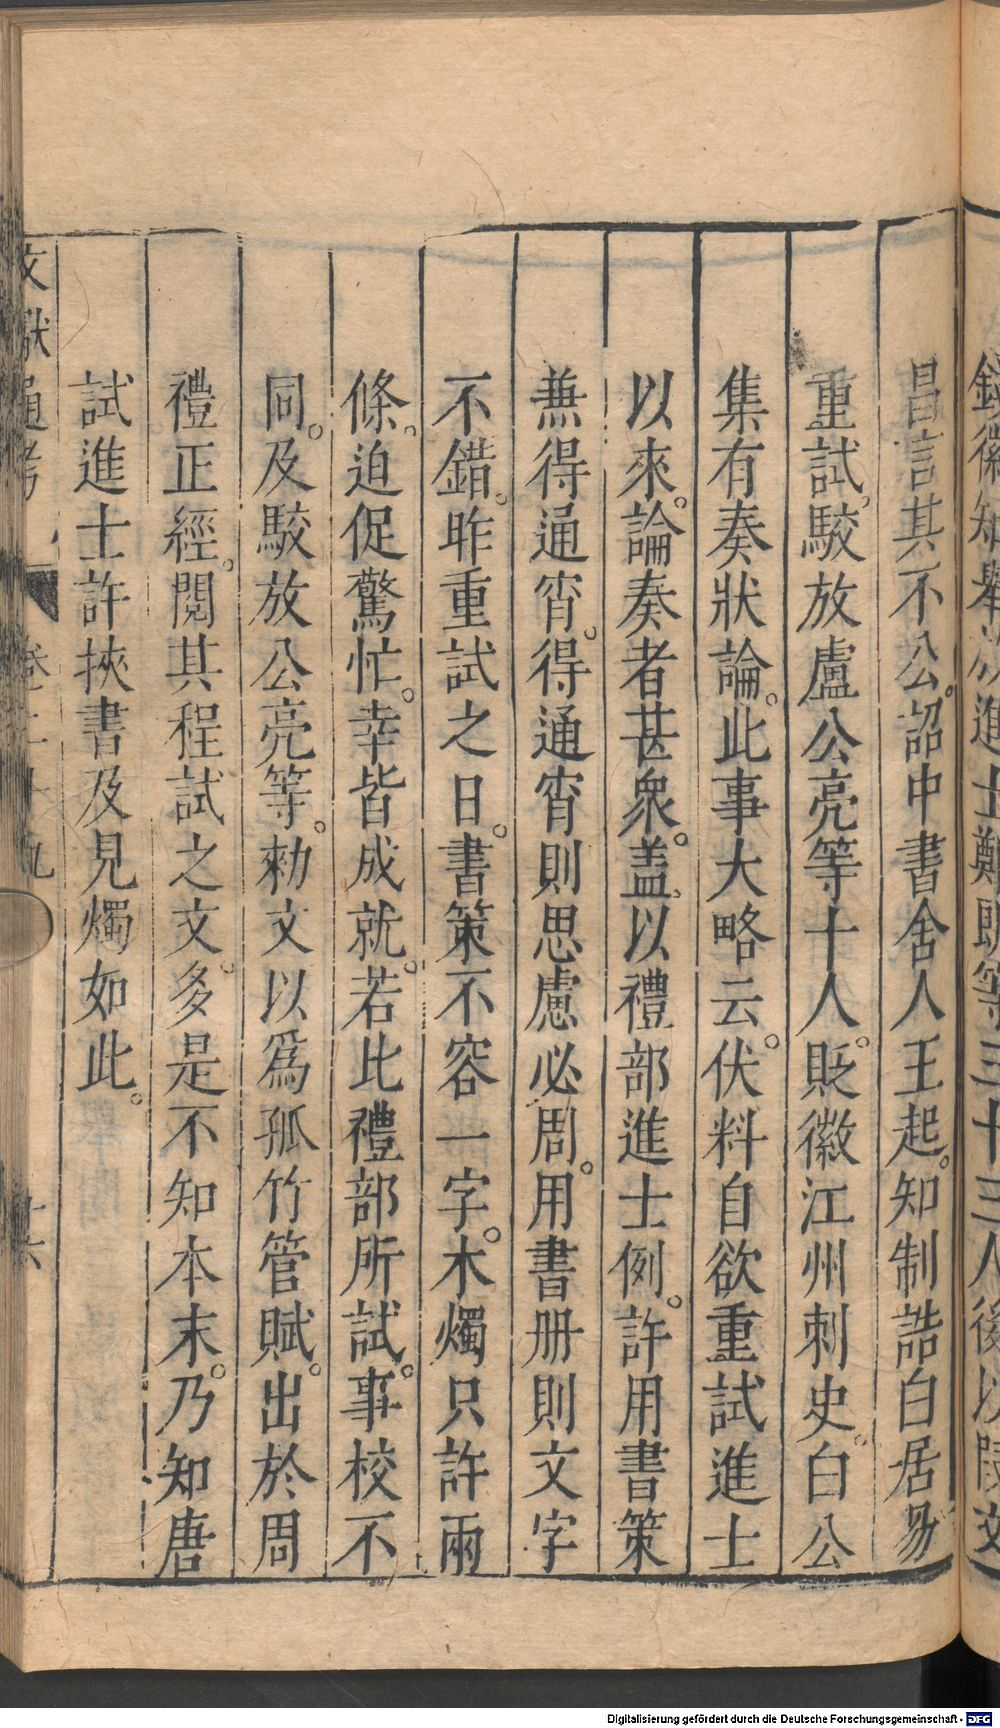 昌言其不公。詔中書舍人王起。知制誥白居易
重試。駮放盧公亮等十人。貶徽江州刺史。白公
集有奏狀論。此事大略云。伏料自欲重試進士
以來。論奏者甚衆。盖以禮部進士例。許用書策
兼得通宵。得通宵則思慮必周。用書册則文字
不錯。昨重試之日。書策不容一字。木燭只許兩
條。迫促驚忙。幸皆成就。若比禮部所試。事校不
同。及駮放公亮等。勑文以爲孤竹管賦。出於周
禮正經。閱其程試之文。多是不知本末。乃知唐
試進士許挾書及見燭如此。
文獻通考
Digitalisierung gefördert durch die Deutsche Forschungsgemeinschaft - DFG